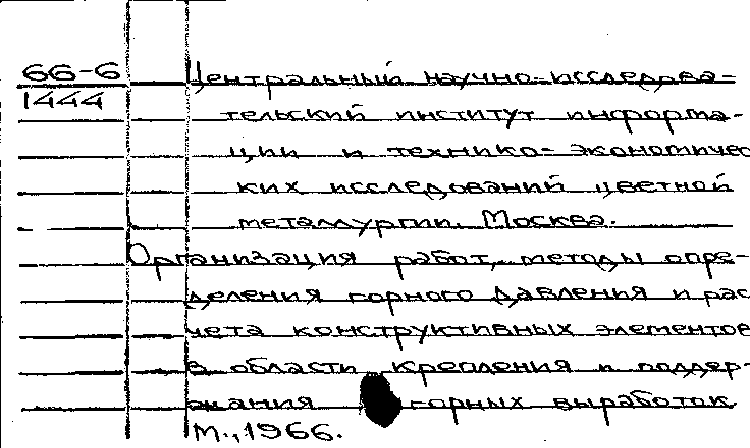 66-6
1444
Центральный научно-исследова-
тельский институт информа-
ции и технико-экономичес
ких исследований цветной
металлургии. Москва.
Организация работ, методы опре-
деления горного давления и рас
чета конструктивных элементов
в области крепления и поддер-
жания горных выработок.
М., 1966.